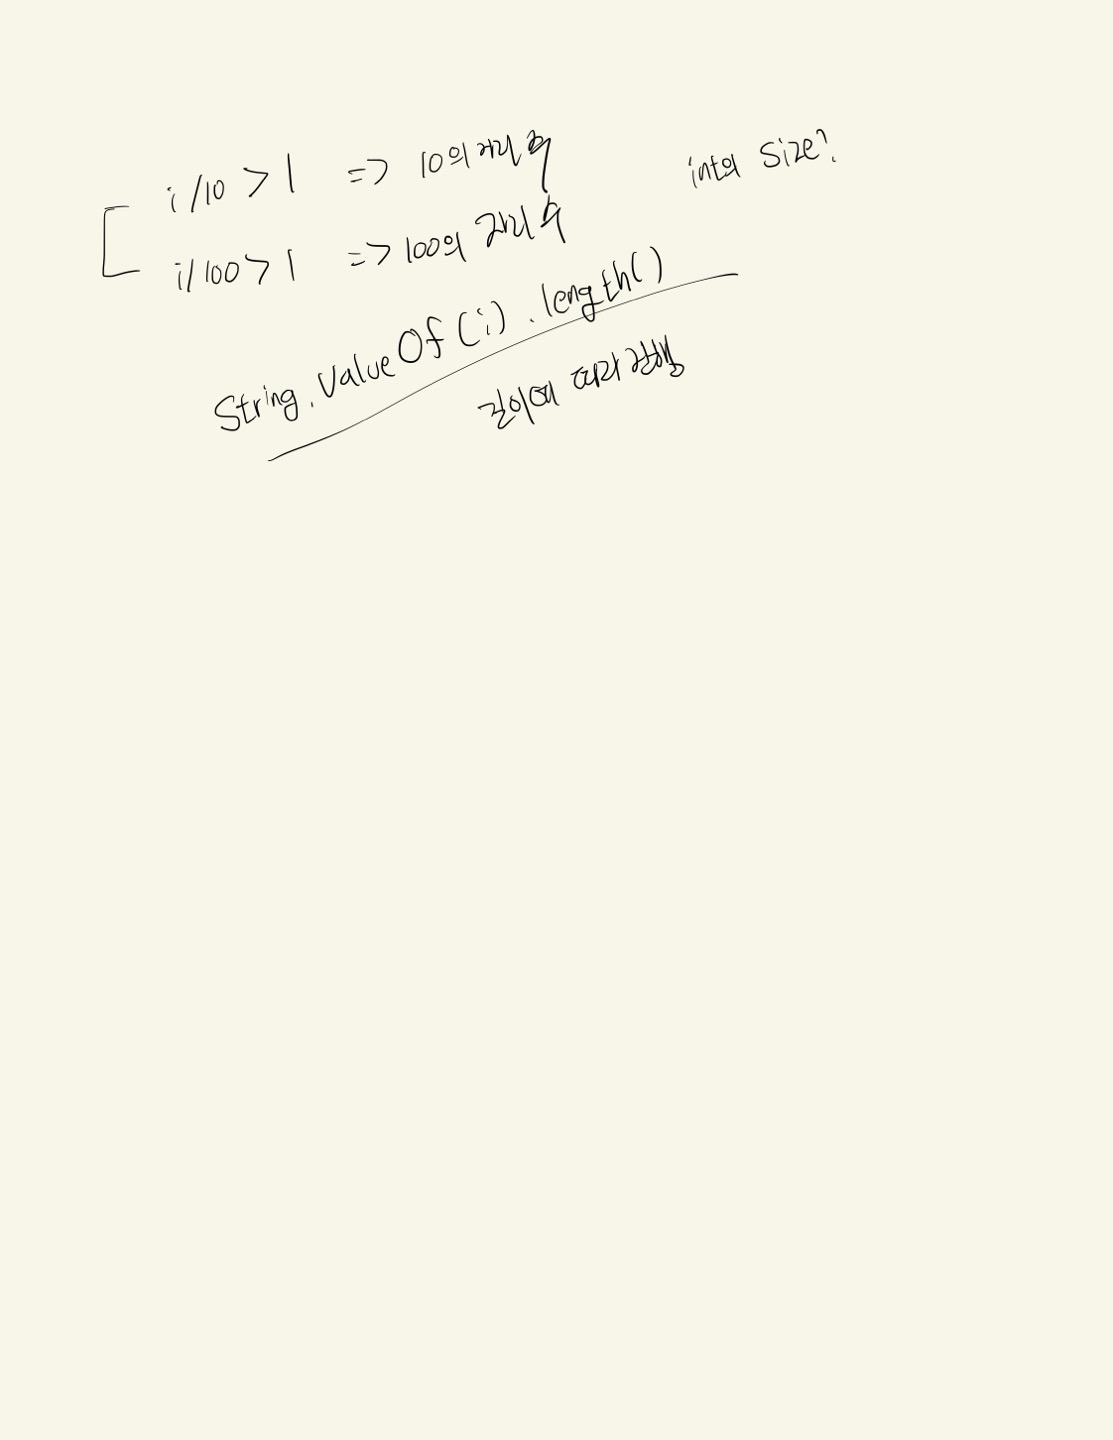 i/10 > 1 => 10의 자리 수
int의 size?
i/100 > 1 => 100의 자리 수
String.valueOf(i).length()
길이에 따라 진행